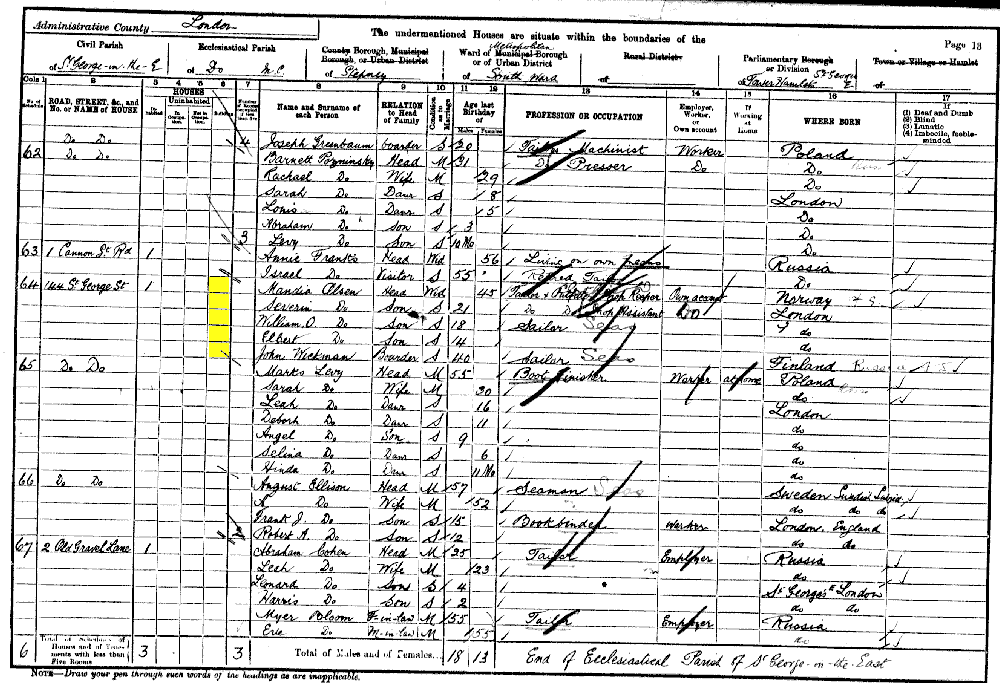 Administrative County London
The undermentioned Houses are situate within the boundaries of the
Page 13
Civil Parish
of St George-in-the-E
Ecclesiastical Parish
of Do
County Borough, Municipal Borough, or Urban District
of Stepney
Ward of Municipal Borough or of Urban District
Metropolitan
of South Ward
Rural District
of
Parliamentary Borough or Division
St Georges E
of Tower Hamlets
Town or Village or Hamlet
of
Cols 1 2 3 4 5 6 7 8 9 10 11 12 13 14 15 16 17
ROAD, STREET, &c., and No. or NAME of HOUSE
HOUSES
Uninhabited
Name and Surname of each Person
RELATION to Head of Family
Condition as to Marriage
Age last Birthday of
Males Females
PROFESSION OR OCCUPATION
Employer, Worker, or Own account
If Working at Home
WHERE BORN
If (1) Deaf and Dumb (2) Blind (3) Lunatic (4) Imbecile, feeble-minded
Do Do 4 Joseph Greenbaum Boarder S 20 Tailor Machinist Worker Poland
62 Do Do Barnett Pozminsky Head M 31 Do Presser Do Do
Rachael Do Wife M 29 Do
Sarah Do Daur S 8 London
Louis Do Daur S 5 Do
Abraham Do Son S 3 Do
3 Levy Do Son S 10 Mo Do
63 1 Cannon St Rd 1 Annie Franks Head Wid 56 Living on own means Russia
Israel Do Visitor S 55 Retired Tailor Do
64 144 St George St 1 Mandia Olsen Head Wid 45 Tailor & Shop Keeper Own account Norway
Severin Do Son S 21 Do Do Shop Assistant Do London
William O. Do Son S 18 Sailor Seas do
Elbert Do Son S 14 do
John Wickman Boarder S 40 Sailor Seas Finland Russia
65 Do Do Marks Levy Head M 55 Boot Finisher Worker at home Poland
Sarah Do Wife M 30 do
Leah Do Daur S 16 London
Deborh Do Daur S 11 do
Angel Do Son S 9 do
Selina Do Daur S 6 do
Hinda Do Daur S 11 Mo do
66 Do Do August Ellison Head M 57 Seaman Seas Sweden
Do Wife M 52 do do do
Frank J. Do Son S 15 Bookbinder Worker London, England
Robert A. Do Son S 12 do do
67 2 Old Gravel Lane 1 Abraham Cohen Head M 25 Tailor Employer Russia
Leah Do Wife M 23 do
Leonard Do Son S 4 St George's E London
Harris Do Son S 2 do do
Myer Bloom F-in-law M 55 Tailor Employer Russia
Do M-in-law M 55 do
6 Total of Schedules of Houses and of Tenements with less than Five Rooms 3 3 Total of Males and of Females... 18 13 End of Ecclesiastical Parish of St George-in-the-East
NOTE—Draw your pen through such words of the headings as are inapplicable.